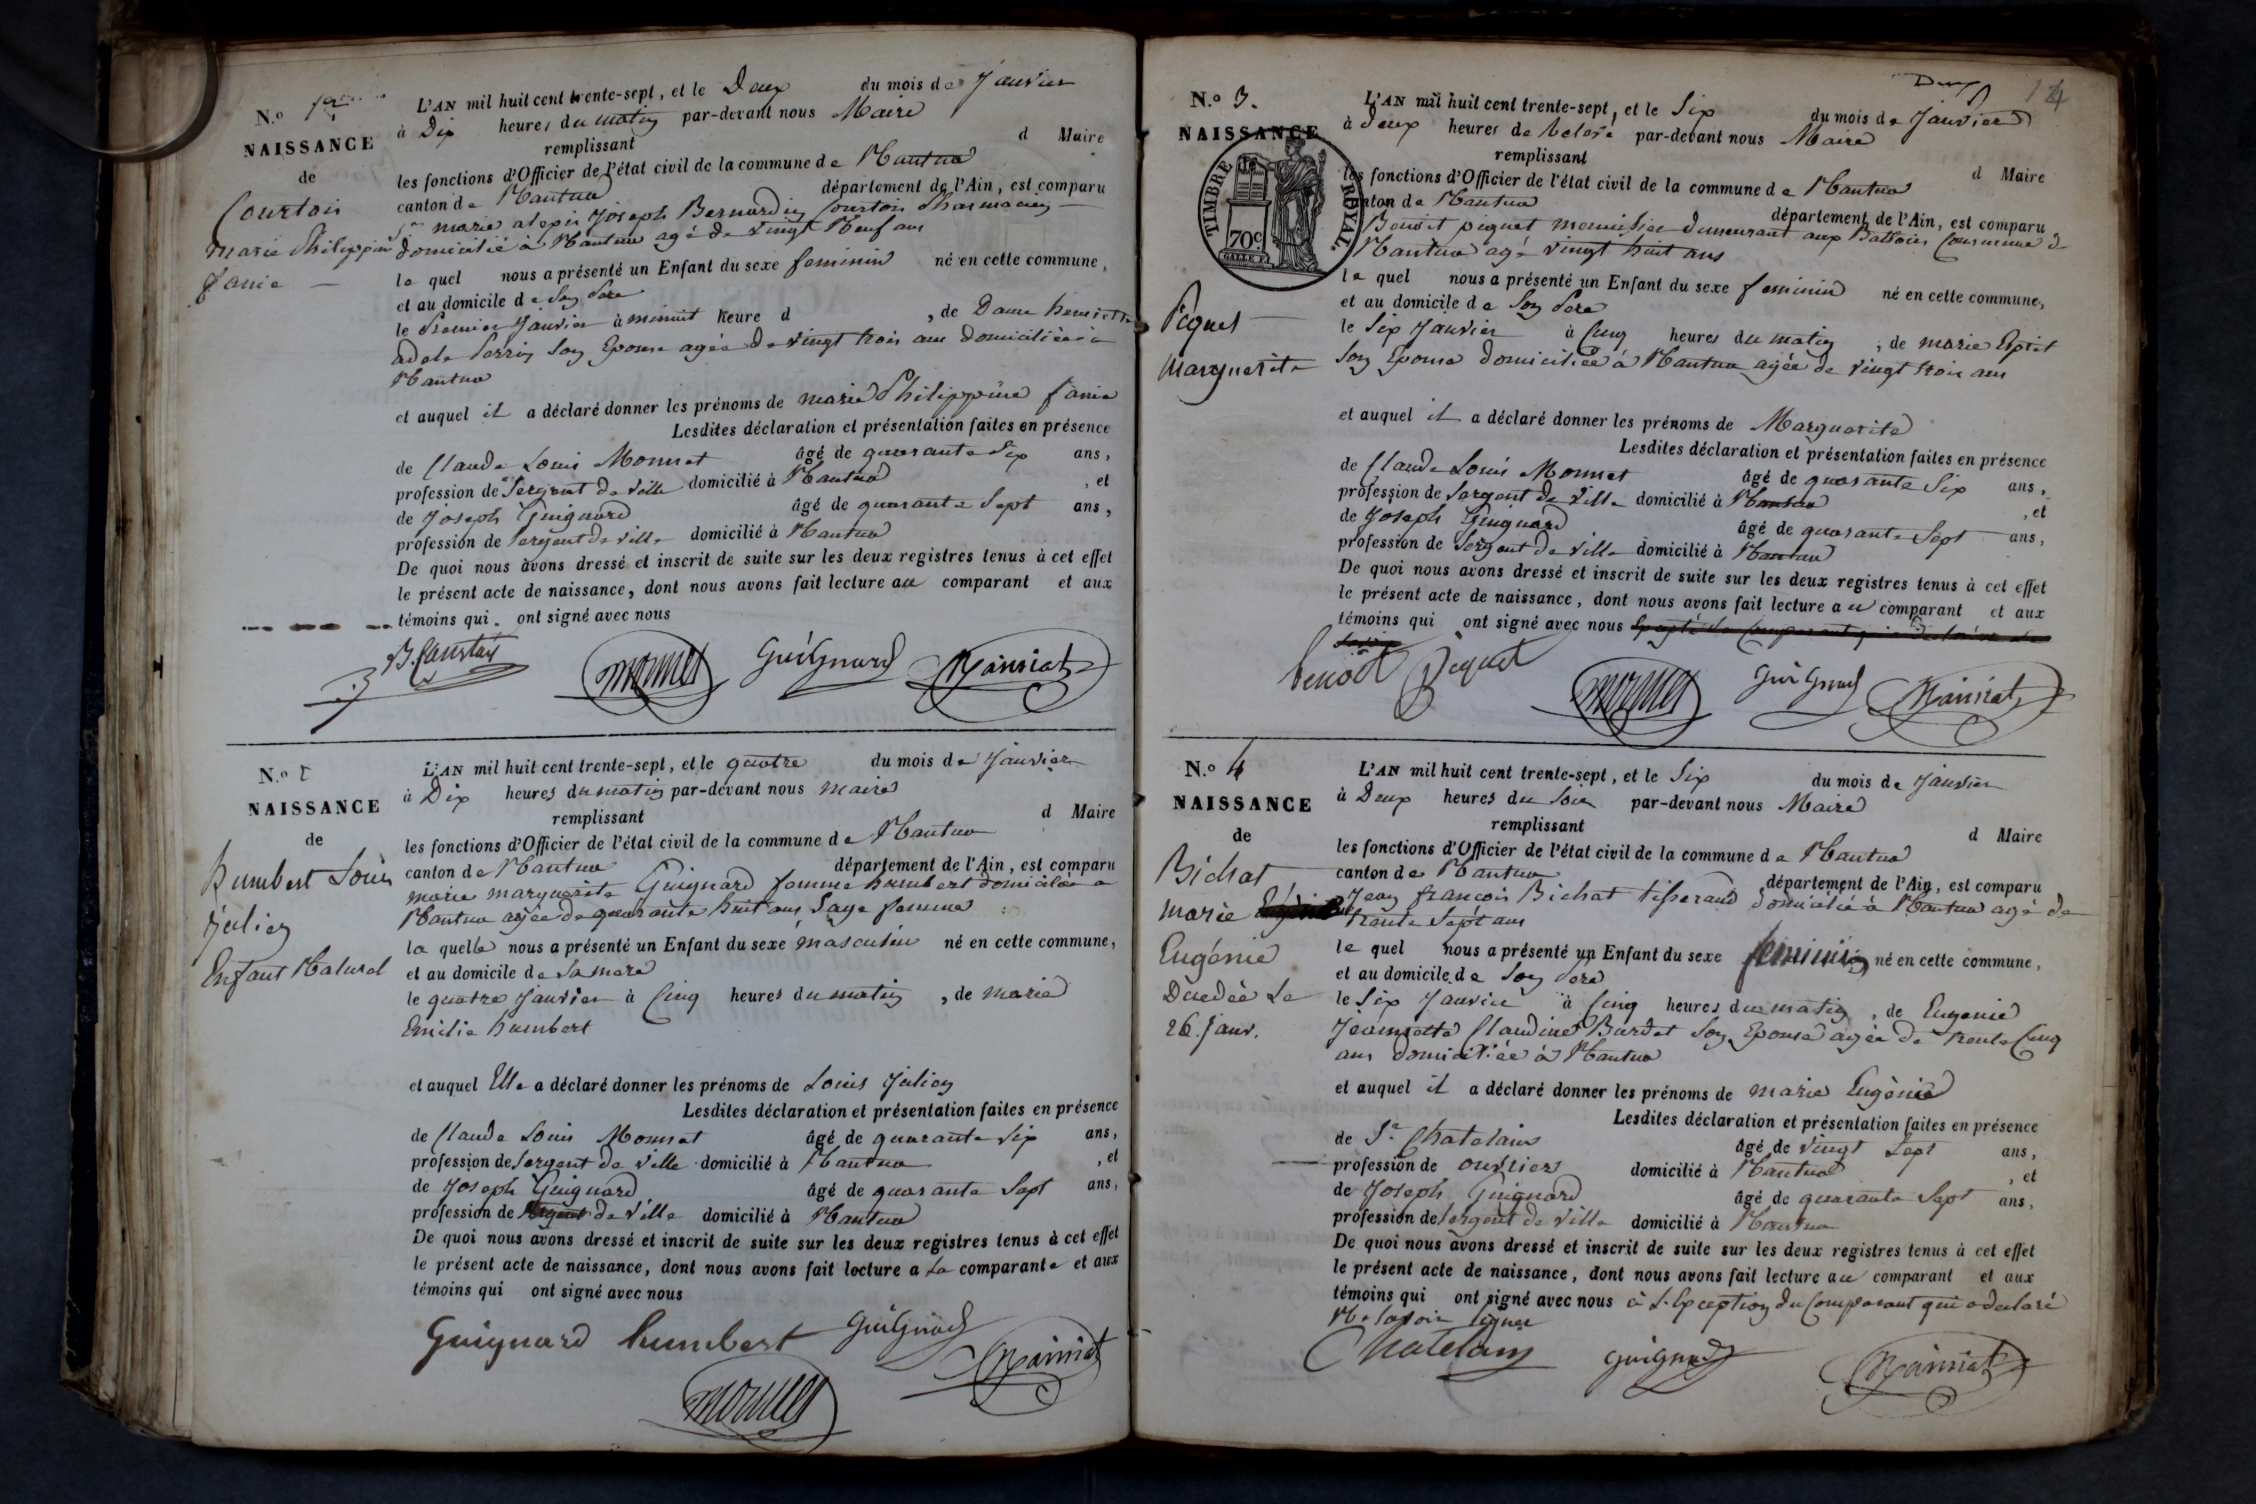 N.o 1er
NAISSANCE
de
Courtois
marie Philippine
fanie
L'AN mil huit cent trente-sept, et le Deux du mois de Janvier
à Dix heures du matin par-devant nous Maire
remplissant d Maire
les fonctions d'Officier de l'état civil de la commune de Nantua
canton de Nantua département de l'Ain, est comparu
Sr marie alexis Joseph Bernardin Courtois Pharmacien
domicilié à Nantua agé de vingt Neuf ans
le quel nous a présenté un Enfant du sexe feminin né en cette commune,
et au domicile de Son Pere
le Premier Janvier à minuit heure d , de Dame henriette
adele Perrin Son Epouse agée de vingt trois ans domiciliée à
Nantua
et auquel il a déclaré donner les prénoms de marie Philippine fanie
Lesdites déclaration et présentation faites en présence
de Claude Louis Monnet âgé de quarante Six ans,
profession de Sergent de Ville domicilié à Nantua , et
de Joseph Guignard âgé de quarante Sept ans,
profession de Sergent de Ville domicilié à Nantua
De quoi nous avons dressé et inscrit de suite sur les deux registres tenus à cet effet
le présent acte de naissance, dont nous avons fait lecture au comparant et aux
témoins qui ont signé avec nous
B. Courtois monnet GuiGnard Mainiat
N.o 2
NAISSANCE
de
humbert Louis
Julien
Enfant Naturel
L'AN mil huit cent trente-sept, et le quatre du mois de Janvier
à Dix heures du matin par-devant nous maire
remplissant d Maire
les fonctions d'Officier de l'état civil de la commune de Nantua
canton de Nantua département de l'Ain, est comparu
marie marguerite Guignard femme humbert domiciliée a
Nantua agée de quarante huit ans Sage femme
la quelle nous a présenté un Enfant du sexe masculin né en cette commune,
et au domicile de Sa mere
le quatre Janvier à Cinq heures du matin , de marie
Emilie humbert
et auquel Elle a déclaré donner les prénoms de Louis Julien
Lesdites déclaration et présentation faites en présence
de Claude Louis Monnet âgé de quarante Six ans,
profession de Sergent de Ville domicilié à Nantua , et
de Joseph Guignard âgé de quarante Sept ans,
profession de Sergent de Ville domicilié à Nantua
De quoi nous avons dressé et inscrit de suite sur les deux registres tenus à cet effet
le présent acte de naissance, dont nous avons fait lecture a la comparante et aux
témoins qui ont signé avec nous
Guignard humbert GuiGnard Mainiat
monnet
Deux
N.o 3.
NAISSANCE
de
TIMBRE ROYAL.
70c
Piquet
Marguerite
L'AN mil huit cent trente-sept, et le Six du mois de Janvier
à Deux heures de par-devant nous Maire
remplissant d Maire
les fonctions d'Officier de l'état civil de la commune de Nantua
canton de Nantua département de l'Ain, est comparu
Benoit piquet menuisier demeurant aux Battoirs Commune de
Nantua agé vingt huit ans
le quel nous a présenté un Enfant du sexe feminin né en cette commune,
et au domicile de Son Pere
le Six Janvier à Cinq heures du matin , de marie
Son Epouse domiciliée à Nantua agée de vingt trois ans
et auquel il a déclaré donner les prénoms de Marguerite
Lesdites déclaration et présentation faites en présence
de Claude Louis Monnet âgé de quarante Six ans,
profession de Sergent de Ville domicilié à Nantua , et
de Joseph Guignard âgé de quarante Sept ans,
profession de Sergent de Ville domicilié à Nantua
De quoi nous avons dressé et inscrit de suite sur les deux registres tenus à cet effet
le présent acte de naissance, dont nous avons fait lecture au comparant et aux
témoins qui ont signé avec nous
benoit piquet monnet GuiGnard Mainiat
N.o 4
NAISSANCE
de
Bichat
marie
Eugénie
Décédée Le
26. Janv.
L'AN mil huit cent trente-sept, et le Six du mois de Janvier
à Deux heures du Soir par-devant nous Maire
remplissant d Maire
les fonctions d'Officier de l'état civil de la commune de Nantua
canton de Nantua département de l'Ain, est comparu
Jean françois Bichat tisserand domicilié à Nantua agé de
trente Sept ans
le quel nous a présenté un Enfant du sexe feminin né en cette commune,
et au domicile de Son Pere
le Six Janvier à Cinq heures du matin , de Eugenie
Jeannette Claudine Burdet Son Epouse agée de trente Cinq
ans domiciliée à Nantua
et auquel il a déclaré donner les prénoms de marie Eugénie
Lesdites déclaration et présentation faites en présence
de Sr Chatelain âgé de vingt Sept ans,
profession de ouvrier domicilié à Nantua , et
de Joseph Guignard âgé de quarante Sept ans,
profession de Sergent de Ville domicilié à Nantua
De quoi nous avons dressé et inscrit de suite sur les deux registres tenus à cet effet
le présent acte de naissance, dont nous avons fait lecture au comparant et aux
témoins qui ont signé avec nous à L'Exception du Comparant qui a declaré
Ne Savoir Signer
Chatelain GuiGnard Mainiat